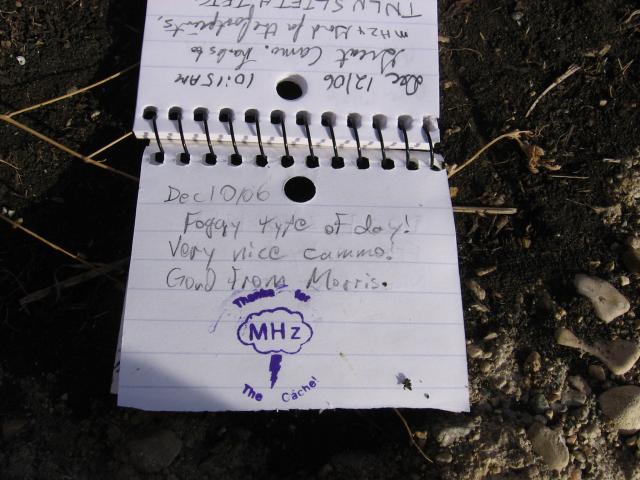 Dec 12/06 10:15AM
Great Camo. Thanks to
MHz & Gord for the footprints,
Dec 10/06
Foggy type of day!
Very nice cammo.
Gord From Morris.
Thanks for
MHz
The Câche!